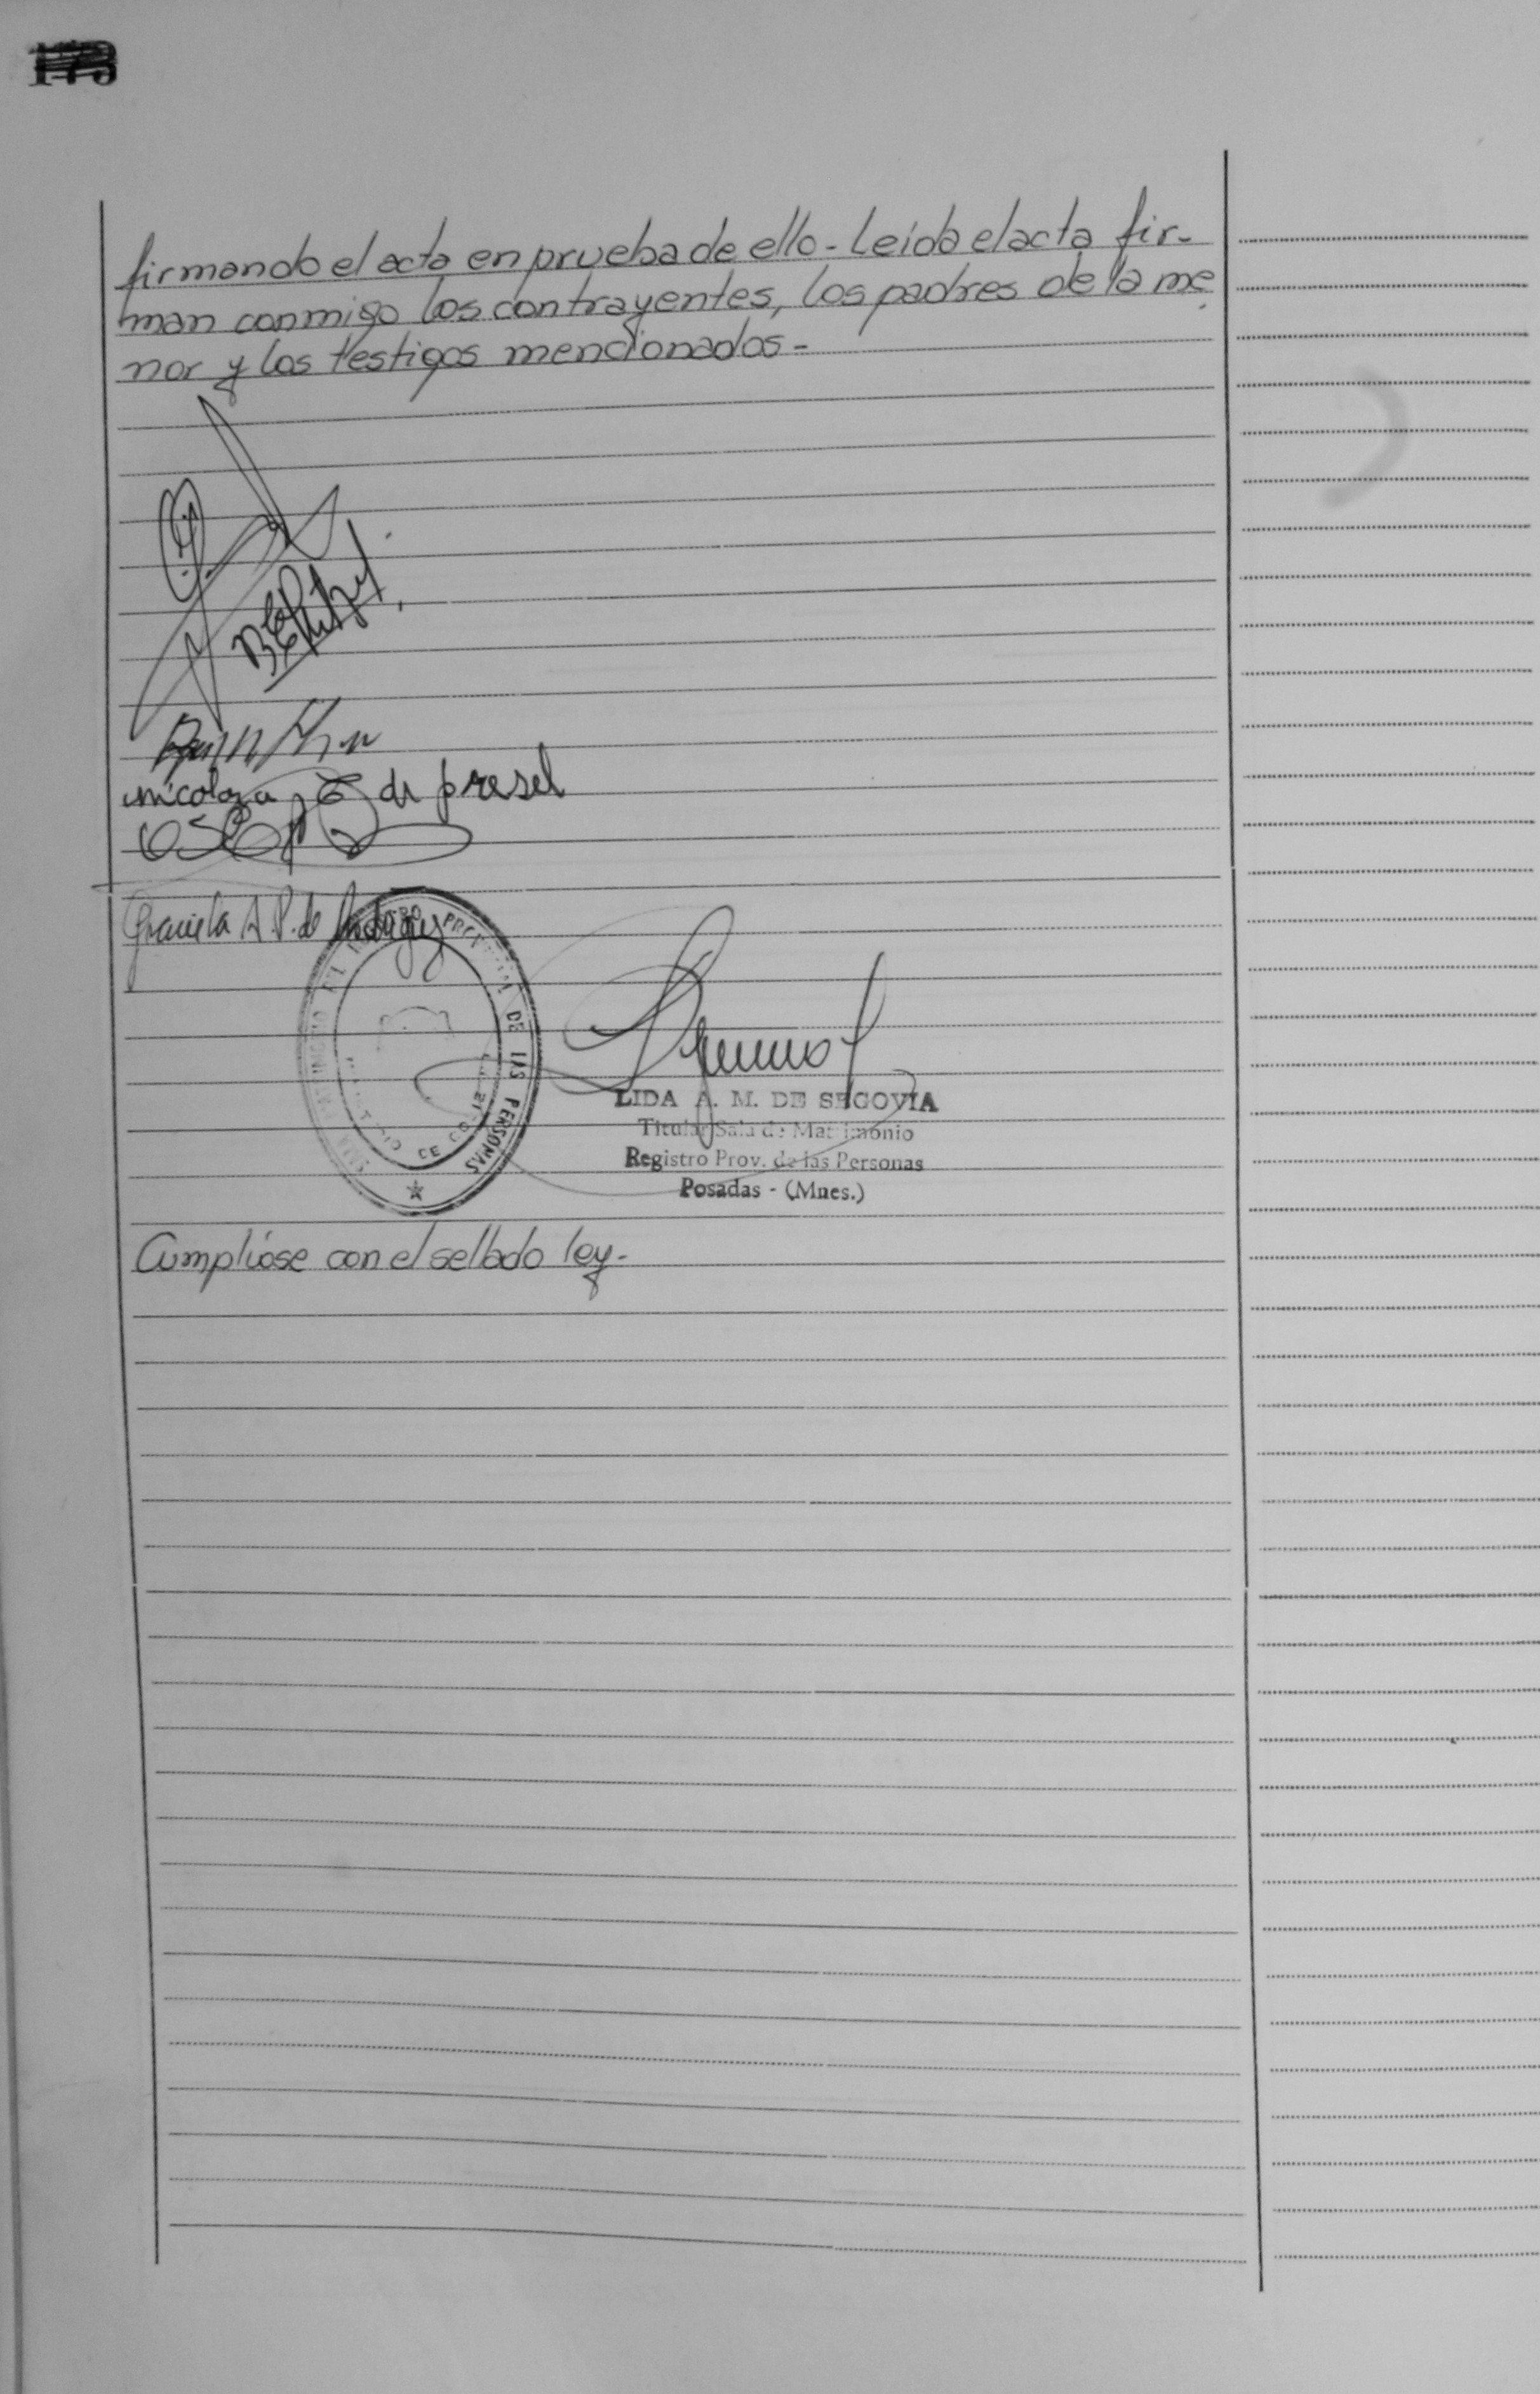 173
firmando el acta en prueba de ello - Leída el acta fir-
man conmigo los contrayentes, los padres de la me
nor y los testigos mencionados -
nicolaza E de presel
Graciela A. P. de Rodriguez
DE LAS PERSONAS
LIDA A. M. DE SEGOVIA
Titular Sala de Matrimonio
Registro Prov. de las Personas
Posadas - (Mnes.)
Cumplióse con el sellado ley -